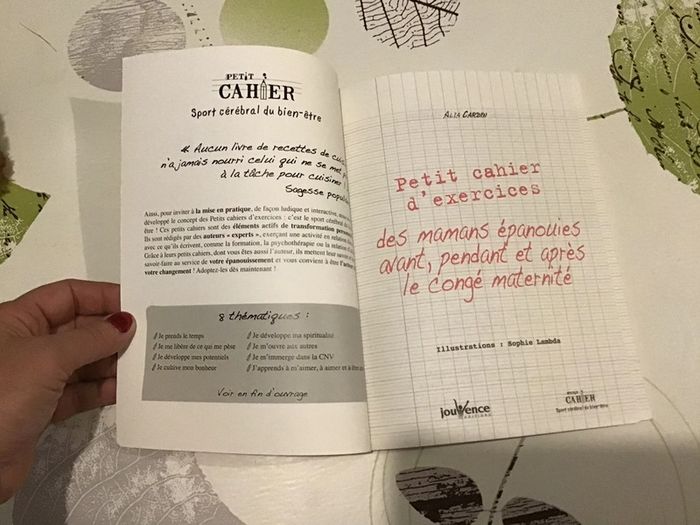 PETIT
CAHIER
Sport cérébral du bien-être
« Aucun livre de recettes de
n'a jamais nourri celui qui ne se met
à la tâche pour cuisiner
Sagesse
Ainsi, pour inviter à la mise en pratique, de façon ludique et interactive,
développé le concept des Petits cahiers d'exercices : c'est le sport cérébral
être ! Ces petits cahiers sont des éléments actifs de transformation
Ils sont rédigés par des auteurs « experts », exerçant une activité en relation
avec ce qu'ils écrivent, comme la formation, la psychothérapie ou la relation
Grâce à leurs petits cahiers, dont vous êtes aussi l'auteur, ils mettent leur
savoir-faire au service de votre épanouissement et vous convient à être
votre changement ! Adoptez-les dès maintenant !
8 thématiques :
Je prends le temps
Je me libère de ce qui me pèse
Je développe mes potentiels
Je cultive mon bonheur
Je développe ma spiritualité
Je m'ouvre aux autres
Je m'immerge dans la CNV
J'apprends à m'aimer, à aimer et à être
Voir en fin d'ouvrage
Petit cahier
d'exercices
des mamans épanouies
avant, pendant et après
le congé maternité
Illustrations : Sophie Lambda
jouvence
EDITIONS
CAHIER
Sport cérébral du bien-être